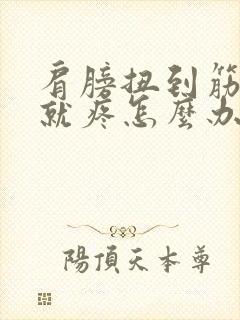 肩膀扭到筋
就疼怎麼办
陽頂天本尊